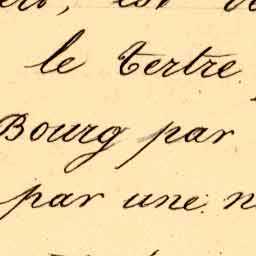 est
le tertre
Bourg par
par une